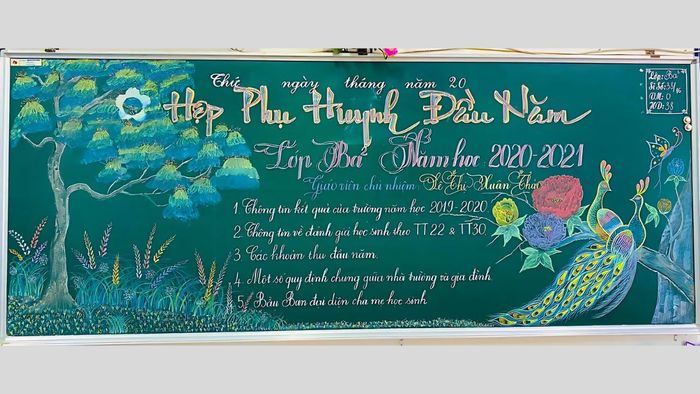 Thứ ngày tháng năm 20
Họp Phụ Huynh Đầu Năm
Lớp Ba Năm học 2020-2021
Giáo viên chủ nhiệm: Lê Thị Xuân Thảo
1. Thông tin kết quả của trường năm học 2019-2020.
2. Thông tin về đánh giá học sinh theo TT22 & TT30.
3. Các khoản thu đầu năm.
4. Một số quy định chung giữa nhà trường và gia đình.
5. Bầu Ban đại diện cha mẹ học sinh.
Lớp: Ba
Sĩ Số: 38/16